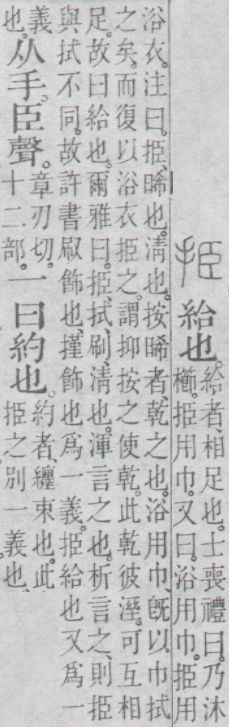 挋
給也。
給者、相足也。士喪禮曰。乃沐
櫛。挋用巾。又曰。浴用巾。挋用
浴衣。注曰。挋、晞也。淸也。按晞者、乾之也。浴用巾、旣以巾拭
之矣。而復以浴衣挋之。謂抑按之使乾。此乾彼溼。可互相
足。故曰給也。爾雅曰。挋、拭、刷、淸也。渾言之也。析言之、則挋
與拭不同。故許書㕞飾也、㨷飾也爲一義。挋給也又爲一
義
也。
从手。臣聲。
章刃切。
十二部。
一曰約也。
約者、纏束也。此
挋之別一義也、